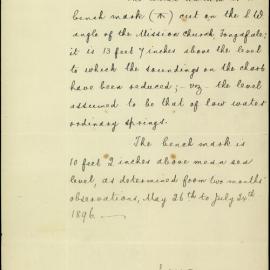 bench mark (⩚) cut on the N.W.
angle of the Mission Church, Fongafale;
it is 13 feet 7 inches above the level
to which the soundings on the chart
have been reduced; – viz – the level
assumed to be that of low water
ordinary springs.
The bench mark is
10 feet 2 inches above mean sea
level, as determined from two months'
observations, May 26th to July 24th
1896.